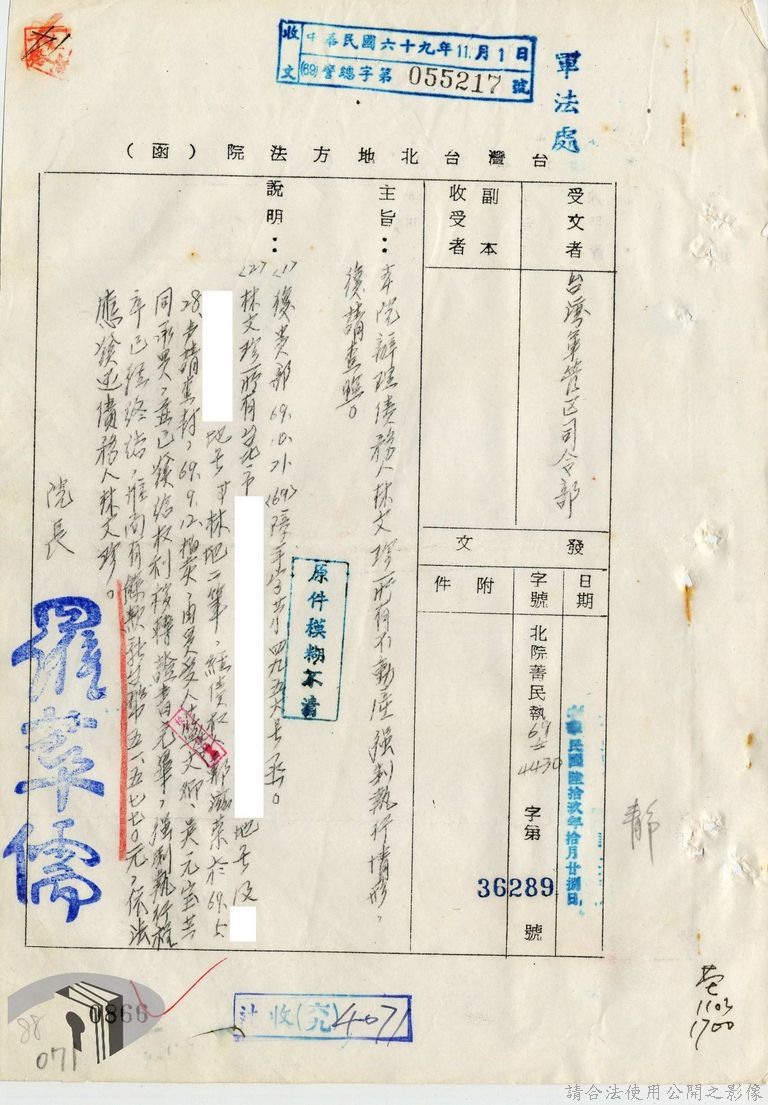 收文 中華民國六十九年11月1日
(69)督總字第055217號
軍法處
台灣台北地方法院（函）
受文者 台灣軍管區司令部
副本收受者
發文
日期 中華民國陸拾玖年拾月廿捌日
字號 北院菁民執69 4430字第36289號
附件
主旨：本院辦理債務人林文珍所有不動產強制執行情形，
復請查照。
說明：
<1>復貴部69.10.21.<69>障 字第四九五六號函。
<2>林文珍所有 市 地號及
地號 林地二筆，經債權 於69.5.
28.聲請查封，69.9.12.拍賣，由買受人 文卿、吳元宝共
同承買，並已發給權利移轉證書完畢，強制執行程
序已經終結，惟尚有餘款 五一五七七〇元，依法
應發还債務人林文珍。
院長 羅萃儒
原件模糊不清
靜
0866
88
071
計收(究)4071
1103
1700
請合法使用公開之影像